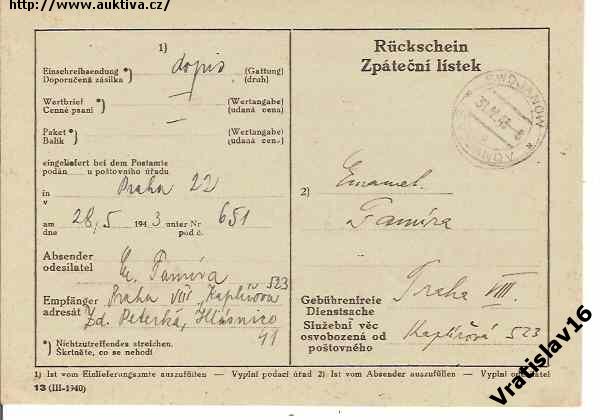 http://www.auktiva.cz/
1)
Einschreibsendung *) dopis (Gattung)
Doporučená zásilka (druh)
Wertbrief *) — (Wertangabe)
Cenné psaní (udaná cena)
Paket *) — (Wertangabe)
Balík (udaná cena)
eingeliefert bei dem Postamte
podán u poštovního úřadu
in Praha 22
v
am 28/5 1943 unter Nr 651
dne pod č.
Absender
odesílatel Em. Famíra
Praha VIII Kaplířova 523
Empfänger
adresát Zd. Peterka, Hlásnice
11
*) Nichtzutreffendes streichen.
Škrtněte, co se nehodí
Rückschein
Zpáteční lístek
SWOJANOW
SVOJANOV
2) Emanuel
Famíra
Praha VIII.
Gebührenfreie
Dienstsache
Služební věc
osvobozená od
poštovného
Kaplířova 523
1) Ist vom Einlieferungsamte auszufüllen — Vyplní podací úřad 2) Ist vom Absender auszufüllen — Vyplní odesílatel
13 (III-1940)
Vratislav16